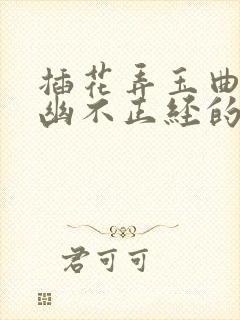 插花弄玉曲
幽不正经的
君可可